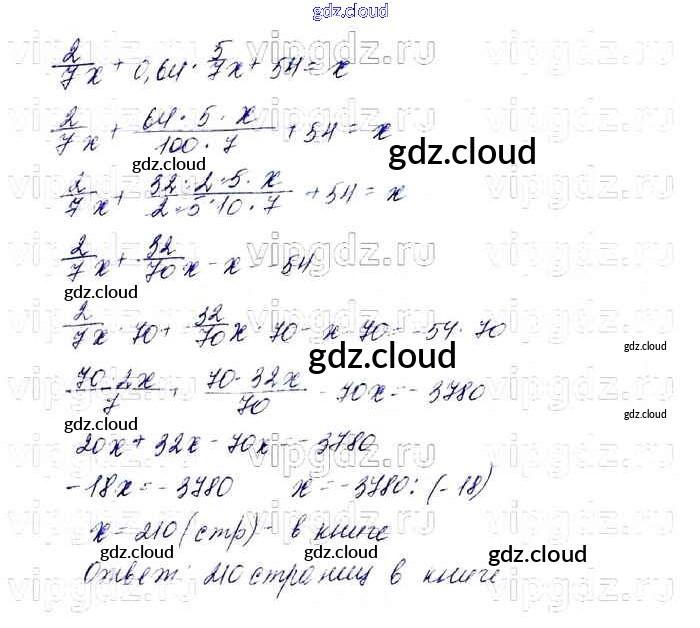 gdz.cloud
2/7 x + 0,64 · 5/7 x + 54 = x
2/7 x + 64 · 5 · x / 100 · 7 + 54 = x
gdz.cloud
gdz.cloud
2/7 x + 32 · 2 · 5 · x / 2 · 5 · 10 · 7 + 54 = x
2/7 x + 32/70 x - x = -54
gdz.cloud
2/7 x · 70 + 32/70 x · 70 - x · 70 = -54 · 70
gdz.cloud
gdz.cloud
70 · 2x / 7 + 70 · 32x / 70 - 70x = -3780
gdz.cloud
gdz.cloud
20x + 32x - 70x = -3780
-18x = -3780 x = -3780 : (-18)
x = 210 (стр) - в книге
gdz.cloud
gdz.cloud
gdz.cloud
Ответ: 210 страниц в книге
vipgdz.ru